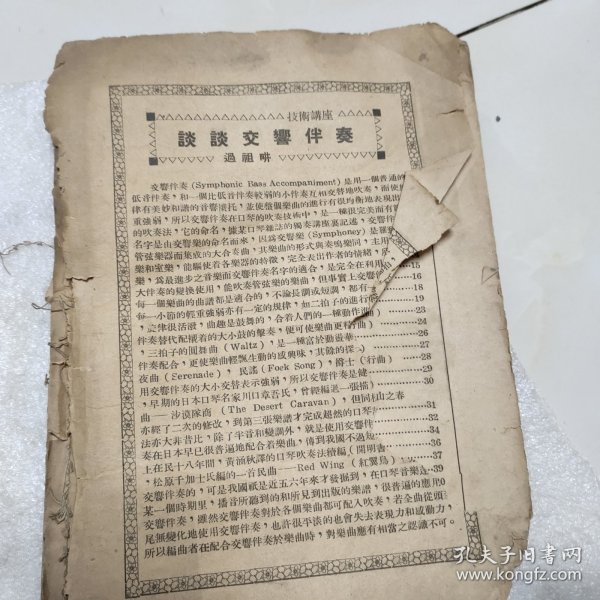 技術講座
談談交響伴奏
過祖
交響伴奏(Symphonic Bass Accompaniment)是用一個普通的
低音伴奏,和一個比低音伴奏較弱的小伴奏互相交替地吹奏,而使
律有美妙和諧的音響襯托,並使整個樂曲的進行有很均衡地表現出
重強弱,所以交響伴奏在口琴的吹奏技術中,是一種很完美而有
的吹奏法,它的命名,據某口琴雜誌的獨奏講座裏記述,交響
名字是由交響樂的命名而來,因為交響樂(Symphoney)是
管弦樂器而集成的大合奏曲,其樂曲的形式與奏鳴樂同,主用
樂和室樂,能顯使着各樂器的特徵,完全表出作者的情緒,
樂,為最進步之音樂而交響伴奏名字的適合,是完全在利用
大伴奏的變換使用,能吹奏管弦樂的樂曲,但事實上交響伴
每一個樂曲的曲譜都是適合的,不論長調或短調,都有
每一小節的輕重強弱亦有一定的規律,如二拍子的進行
旋律很活潑,曲趣是鼓舞的,合着人們的一種動作
伴奏替代配襯着的大小鼓的擊奏,便可使樂曲更
三拍子的圓舞曲(Waltz),是一種富於動
伴奏配合,更使樂曲輕飄生動的感興味,其餘的
夜曲(Serenade),民謠(Fock Song),爵士(行曲)
用交響伴奏的大小交替表示強弱,所以交響伴奏是
,早期的日本口琴名家川口章吾氏,曾經編進一
曲——沙漠隊商(The Desert Caravan),但同
亦經了二次的修改,到第三張樂譜才完成超然的口琴
法亦大非昔比,除了半音和變調外,就是使用交響伴
奏在日本早已很普遍地配合着樂曲,傳到我國不過
上在民十八年間,黃涵秋譯的口琴吹奏法續編(開明書
,松原千加士氏編的一首民曲——Red Wing(紅翼鳥)
交響伴奏的,可是我國祇是近五六年來才發掘到,在口琴音樂
某一個時期裏,播音所聽到的和所見到出版的樂譜,很普遍的應用
交響伴奏,雖然交響伴奏對於各個樂曲都可配入吹奏,若全曲從頭
尾無變化地使用交響伴奏,也許很平淡的也會失去表現力和感動力,
所以編曲者在配合交響伴奏於樂曲時,對樂曲應有相當之認識不可。
15
16
18
19
23
24
24
26
28
29
30
31
32
34
36
37
39
40
孔夫子旧书网
www.kongfz.com